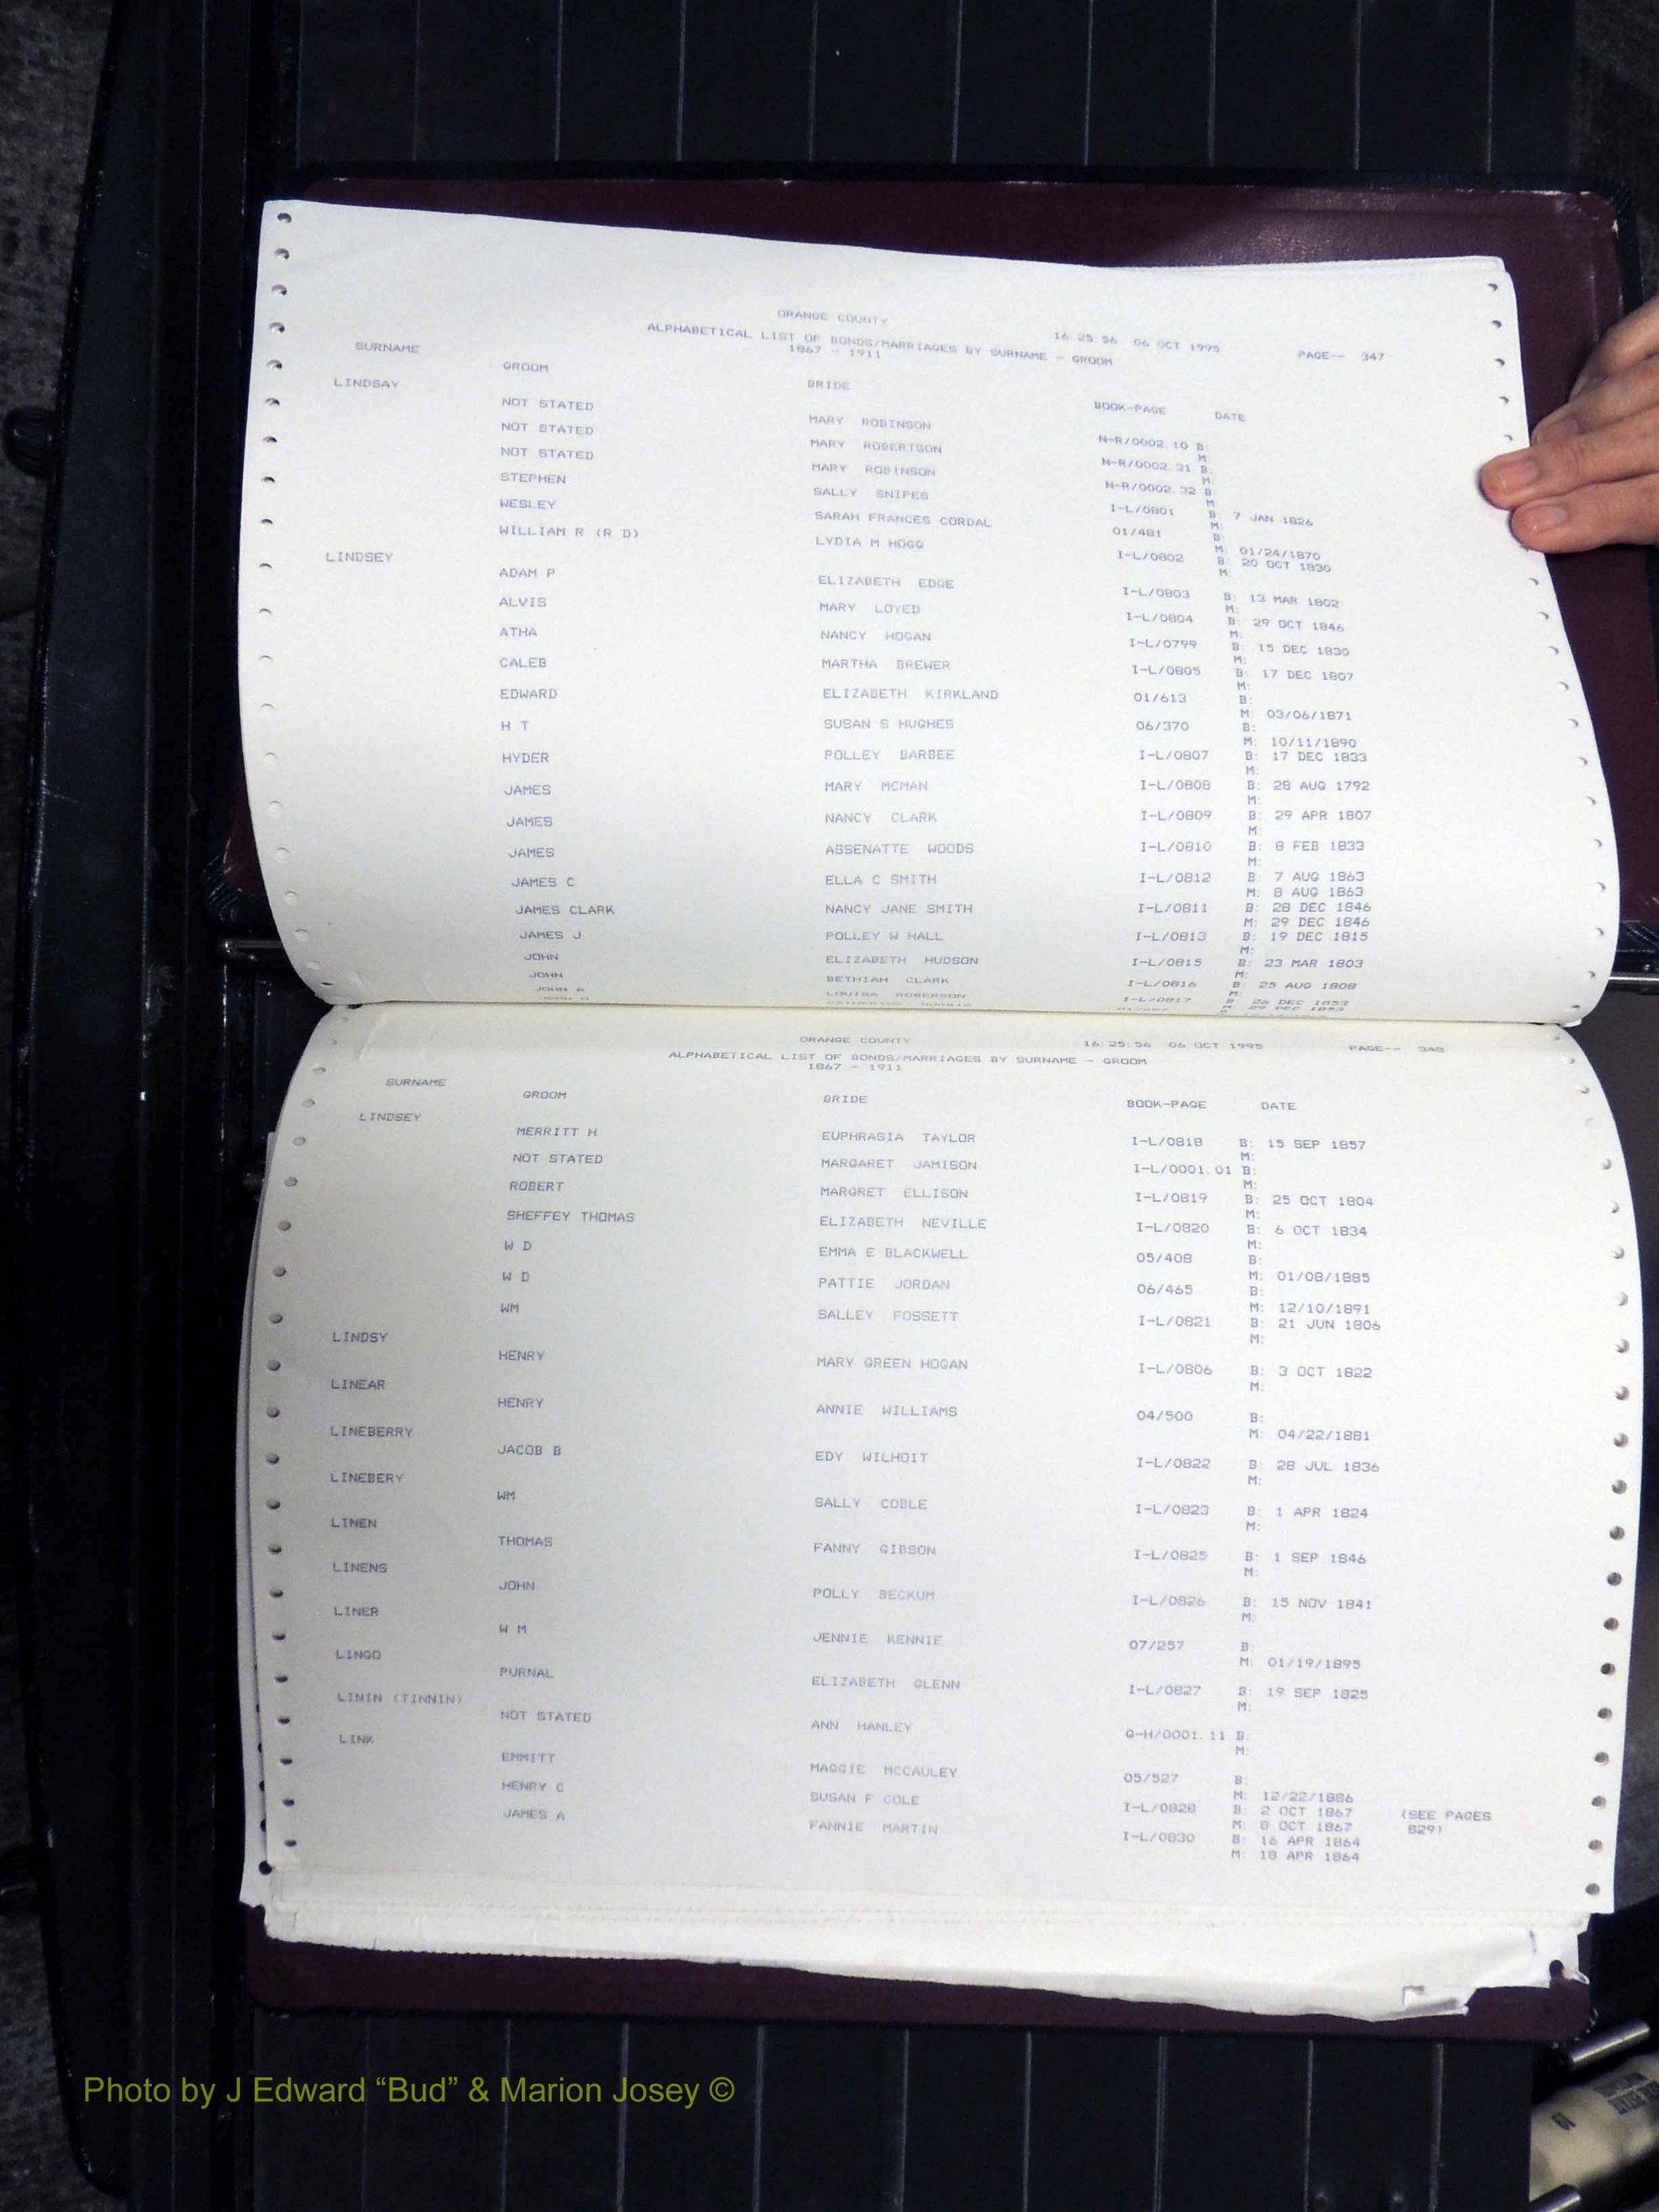 ORANGE COUNTY 16:25:56 06 OCT 1995 PAGE-- 347
ALPHABETICAL LIST OF BONDS/MARRIAGES BY SURNAME - GROOM
1867 - 1911
SURNAME GROOM BRIDE BOOK-PAGE DATE
LINDSAY
NOT STATED MARY ROBINSON N-R/0002.10 B:
M:
NOT STATED MARY ROBERTSON N-R/0002.31 B:
M:
NOT STATED MARY ROBINSON N-R/0002.32 B:
M:
STEPHEN SALLY SNIPES I-L/0801 B: 7 JAN 1826
M:
WESLEY SARAH FRANCES CORDAL 01/481 B:
M: 01/24/1870
WILLIAM R (R D) LYDIA M HOGG I-L/0802 B: 20 OCT 1830
M:
LINDSEY
ADAM P ELIZABETH EDGE I-L/0803 B: 13 MAR 1802
M:
ALVIS MARY LOYED I-L/0804 B: 29 OCT 1846
M:
ATHA NANCY HOGAN I-L/0799 B: 15 DEC 1830
M:
CALEB MARTHA BREWER I-L/0805 B: 17 DEC 1807
M:
EDWARD ELIZABETH KIRKLAND 01/613 B:
M: 03/06/1871
H T SUSAN S HUGHES 06/370 B:
M: 10/11/1890
HYDER POLLEY BARBEE I-L/0807 B: 17 DEC 1833
M:
JAMES MARY MCMAN I-L/0808 B: 28 AUG 1792
M:
JAMES NANCY CLARK I-L/0809 B: 29 APR 1807
M:
JAMES ASSENATTE WOODS I-L/0810 B: 8 FEB 1833
M:
JAMES C ELLA C SMITH I-L/0812 B: 7 AUG 1863
M: 8 AUG 1863
JAMES CLARK NANCY JANE SMITH I-L/0811 B: 28 DEC 1846
M: 29 DEC 1846
JAMES J POLLEY W HALL I-L/0813 B: 19 DEC 1815
M:
JOHN ELIZABETH HUDSON I-L/0815 B: 23 MAR 1803
M:
JOHN BETHIAH CLARK I-L/0816 B: 25 AUG 1808
M:
JOHN A LOUISA ROBERSON I-L/0817 B: 26 DEC 1853
M: 29 DEC 1853
ORANGE COUNTY 16:25:56 06 OCT 1995 PAGE-- 348
ALPHABETICAL LIST OF BONDS/MARRIAGES BY SURNAME - GROOM
1867 - 1911
SURNAME GROOM BRIDE BOOK-PAGE DATE
LINDSEY
MERRITT H EUPHRASIA TAYLOR I-L/0818 B: 15 SEP 1857
M:
NOT STATED MARGARET JAMISON I-L/0001.01 B:
M:
ROBERT MARGRET ELLISON I-L/0819 B: 25 OCT 1804
M:
SHEFFEY THOMAS ELIZABETH NEVILLE I-L/0820 B: 6 OCT 1834
M:
W D EMMA E BLACKWELL 05/408 B:
M: 01/08/1885
W D PATTIE JORDAN 06/465 B:
M: 12/10/1891
WM SALLEY FOSSETT I-L/0821 B: 21 JUN 1806
M:
LINDSY
HENRY MARY GREEN HOGAN I-L/0806 B: 3 OCT 1822
M:
LINEAR
HENRY ANNIE WILLIAMS 04/500 B:
M: 04/22/1881
LINEBERRY
JACOB B EDY WILHOIT I-L/0822 B: 28 JUL 1836
M:
LINEBERY
WM SALLY COBLE I-L/0823 B: 1 APR 1824
M:
LINEN
THOMAS FANNY GIBSON I-L/0825 B: 1 SEP 1846
M:
LINENS
JOHN POLLY BECKUM I-L/0826 B: 15 NOV 1841
M:
LINER
W M JENNIE KENNIE 07/257 B:
M: 01/19/1895
LINGO
PURNAL ELIZABETH GLENN I-L/0827 B: 19 SEP 1825
M:
LININ (TINNIN)
NOT STATED ANN HANLEY G-H/0001.11 B:
M:
LINK
EMMITT MAGGIE MCCAULEY 05/527 B:
M: 12/22/1886
HENRY C SUSAN F COLE I-L/0828 B: 2 OCT 1867 (SEE PAGES
M: 8 OCT 1867 829)
JAMES A FANNIE MARTIN I-L/0830 B: 16 APR 1864
M: 18 APR 1864
Photo by J Edward “Bud” & Marion Josey ©